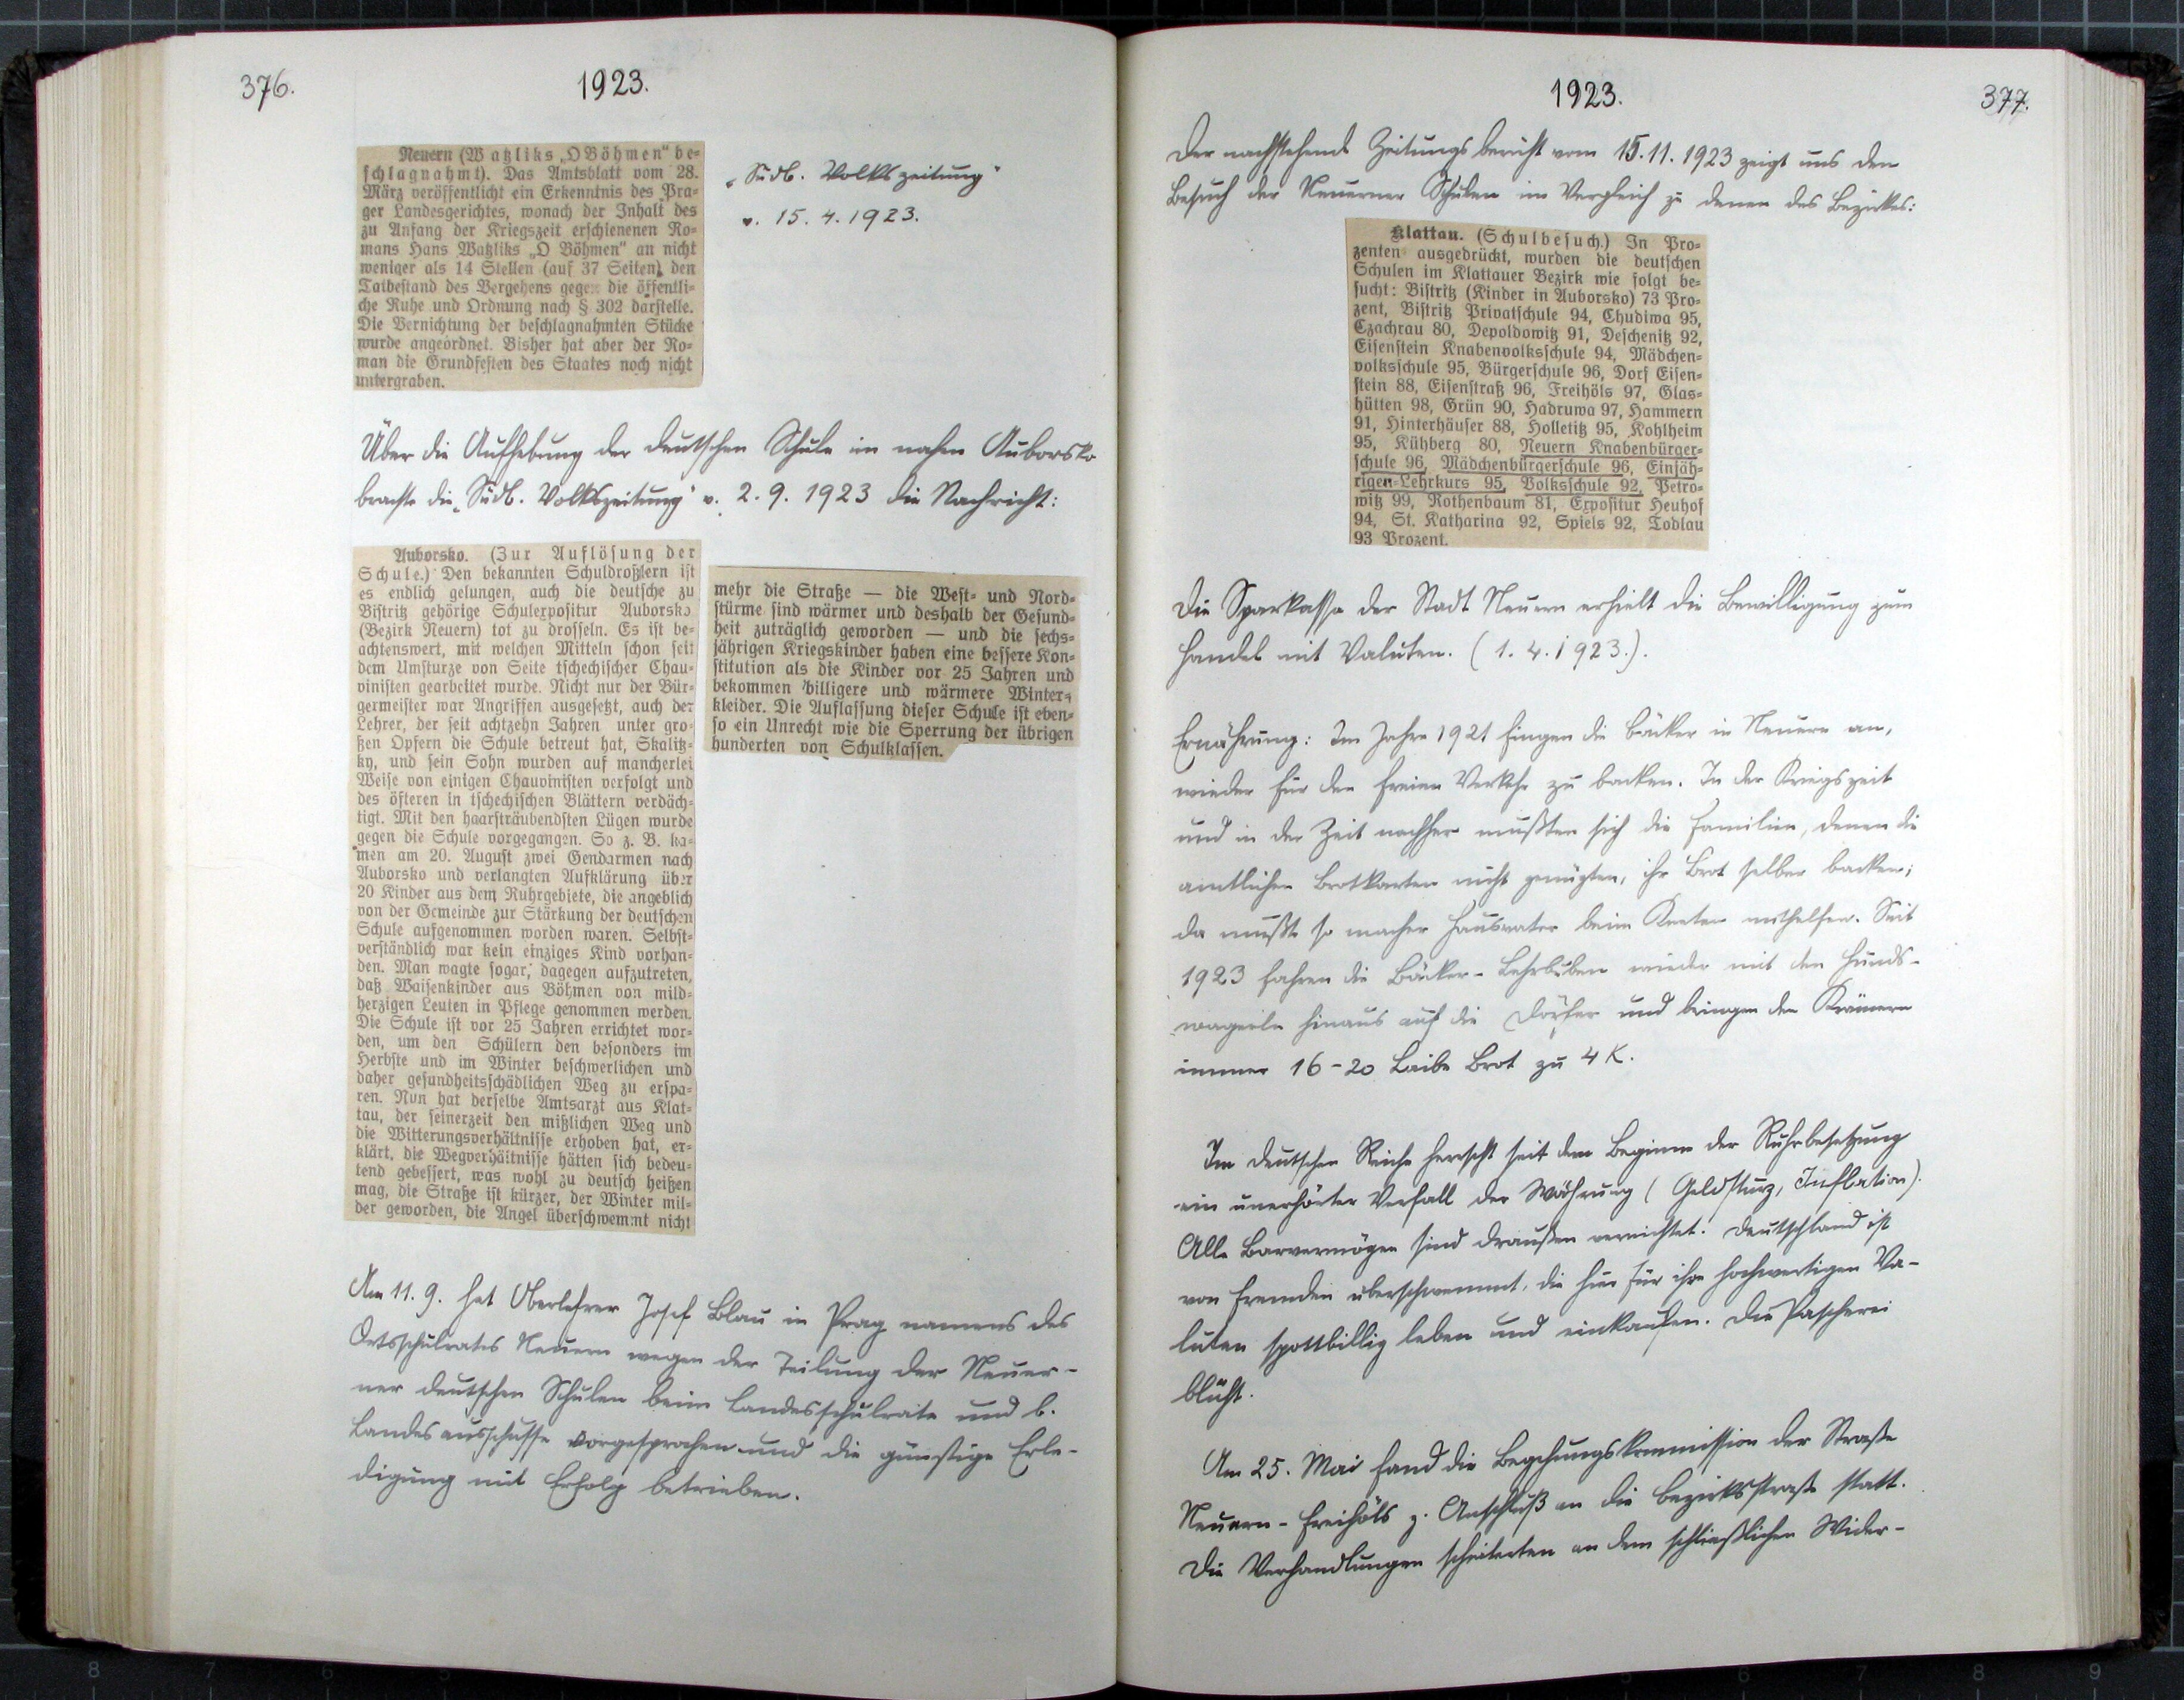 376.
1923.
Neuern (Watzliks „O Böhmen“ be-
schlagnahmt). Das Amtsblatt vom 28.
März veröffentlicht ein Erkenntnis des Pra-
ger Landesgerichtes, wonach der Inhalt des
zu Anfang der Kriegszeit erschienenen Ro-
mans Hans Watzliks „O Böhmen“ an nicht
weniger als 14 Stellen (auf 37 Seiten) den
Tatbestand des Vergehens gegen die öffentli-
che Ruhe und Ordnung nach § 302 darstelle.
Die Vernichtung der beschlagnahmten Stücke
wurde angeordnet. Bisher hat aber der Ro-
man die Grundfesten des Staates noch nicht
untergraben.
„Südb. Volkszeitung“
v. 15. 4. 1923.
Über die Aufhebung der deutschen Schule im nahen Auborsko
brachte die „Südb. Volkszeitung“ v. 2. 9. 1923 die Nachricht:
Auborsko. (Zur Auflösung der
Schule.) Den bekannten Schuldroßlern ist
es endlich gelungen, auch die deutsche zu
Bistritz gehörige Schulexpositur Auborsko
(Bezirk Neuern) tot zu drosseln. Es ist be-
achtenswert, mit welchen Mitteln schon seit
dem Umsturze von Seite tschechischer Chau-
vinisten gearbeitet wurde. Nicht nur der Bür-
germeister war Angriffen ausgesetzt, auch der
Lehrer, der seit achtzehn Jahren unter gro-
ßen Opfern die Schule betreut hat, Skalitz-
ky, und sein Sohn wurden auf mancherlei
Weise von einigen Chauvinisten verfolgt und
des öfteren in tschechischen Blättern verdäch-
tigt. Mit den haarsträubendsten Lügen wurde
gegen die Schule vorgegangen. So z. B. ka-
men am 20. August zwei Gendarmen nach
Auborsko und verlangten Aufklärung über
20 Kinder aus dem Ruhrgebiete, die angeblich
von der Gemeinde zur Stärkung der deutschen
Schule aufgenommen worden waren. Selbst-
verständlich war kein einziges Kind vorhan-
den. Man wagte sogar, dagegen aufzutreten,
daß Waisenkinder aus Böhmen von mild-
herzigen Leuten in Pflege genommen werden.
Die Schule ist vor 25 Jahren errichtet wor-
den, um den Schülern den besonders im
Herbste und im Winter beschwerlichen und
daher gesundheitsschädlichen Weg zu erspa-
ren. Nun hat derselbe Amtsarzt aus Klat-
tau, der seinerzeit den mißlichen Weg und
die Witterungsverhältnisse erhoben hat, er-
klärt, die Wegverhältnisse hätten sich bedeu-
tend gebessert, was wohl zu deutsch heißen
mag, die Straße ist kürzer, der Winter mil-
der geworden, die Angel überschwemmt nicht
mehr die Straße — die West- und Nord-
stürme sind wärmer und deshalb der Gesund-
heit zuträglich geworden — und die sechs-
jährigen Kriegskinder haben eine bessere Kon-
stitution als die Kinder vor 25 Jahren und
bekommen billigere und wärmere Winter-
kleider. Die Auflassung dieser Schule ist eben-
so ein Unrecht wie die Sperrung der übrigen
hunderten von Schulklassen.
Am 11. 9. hat Oberlehrer Josef Blau in Prag namens des
Ortsschulrates Neuern wegen der Teilung der Neuer-
ner deutschen Schulen beim Landesschulrate und b.
Landesausschusse vorgesprochen und die günstige Erle-
digung mit Erfolg betrieben.
1923.
377.
Der nachstehende Zeitungsbericht vom 15. 11. 1923 zeigt uns den
Besuch der Neuerner Schulen im Vergleich zu denen des Bezirkes:
Klattau. (Schulbesuch.) In Pro-
zenten ausgedrückt, wurden die deutschen
Schulen im Klattauer Bezirk wie folgt be-
sucht: Bistritz (Kinder in Auborsko) 73 Pro-
zent, Bistritz Privatschule 94, Chudiwa 95,
Czachrau 80, Depoldowitz 91, Deschenitz 92,
Eisenstein Knabenvolksschule 94, Mädchen-
volksschule 95, Bürgerschule 96, Dorf Eisen-
stein 88, Eisenstraß 96, Freihöls 97, Glas-
hütten 98, Grün 90, Hadruwa 97, Hammern
91, Hinterhäuser 88, Holletitz 95, Kohlheim
95, Kühberg 80, Neuern Knabenbürger-
schule 96, Mädchenbürgerschule 96, Einjäh-
rigen-Lehrkurs 95, Volksschule 92, Petro-
witz 99, Rothenbaum 81, Expositur Heuhof
94, St. Katharina 92, Spiels 92, Todlau
93 Prozent.
Die Sparkasse der Stadt Neuern erhielt die Bewilligung zum
Handel mit Valuten. (1. 4. 1923.).
Ernährung: Im Jahre 1921 fingen die Bäcker in Neuern an,
wieder für den freien Verkehr zu backen. In der Kriegszeit
und in der Zeit nachher mußten sich die Familien, denen die
amtlichen Brotkarten nicht genügten, ihr Brot selber backen;
da mußte so macher Hausvater beim Kneten mithelfen. Seit
1923 fahren die Bäcker-Lehrbuben wieder mit den Hunds-
wagerln hinaus auf die Dörfer und bringen den Krämern
immer 16-20 Laibe Brot zu 4 K.
Im deutschen Reiche herrscht seit dem Beginne der Ruhrbesetzung
ein unerhörter Verfall der Währung (Geldsturz, Inflation).
Alle Barvermögen sind draußen vernichtet! Deutschland ist
von Fremden überschwemmt, die hier für ihre hochwertigen Va-
luten spottbillig leben und einkaufen. Die Pascherei
blüht.
Am 25. Mai fand die Begehungskommission der Straße
Neuern-Freihöls z. Anschluß an die Bezirksstraße statt.
Die Verhandlungen scheiterten an dem schließlichen Wider-
8
7
6
5
6
7
8
9